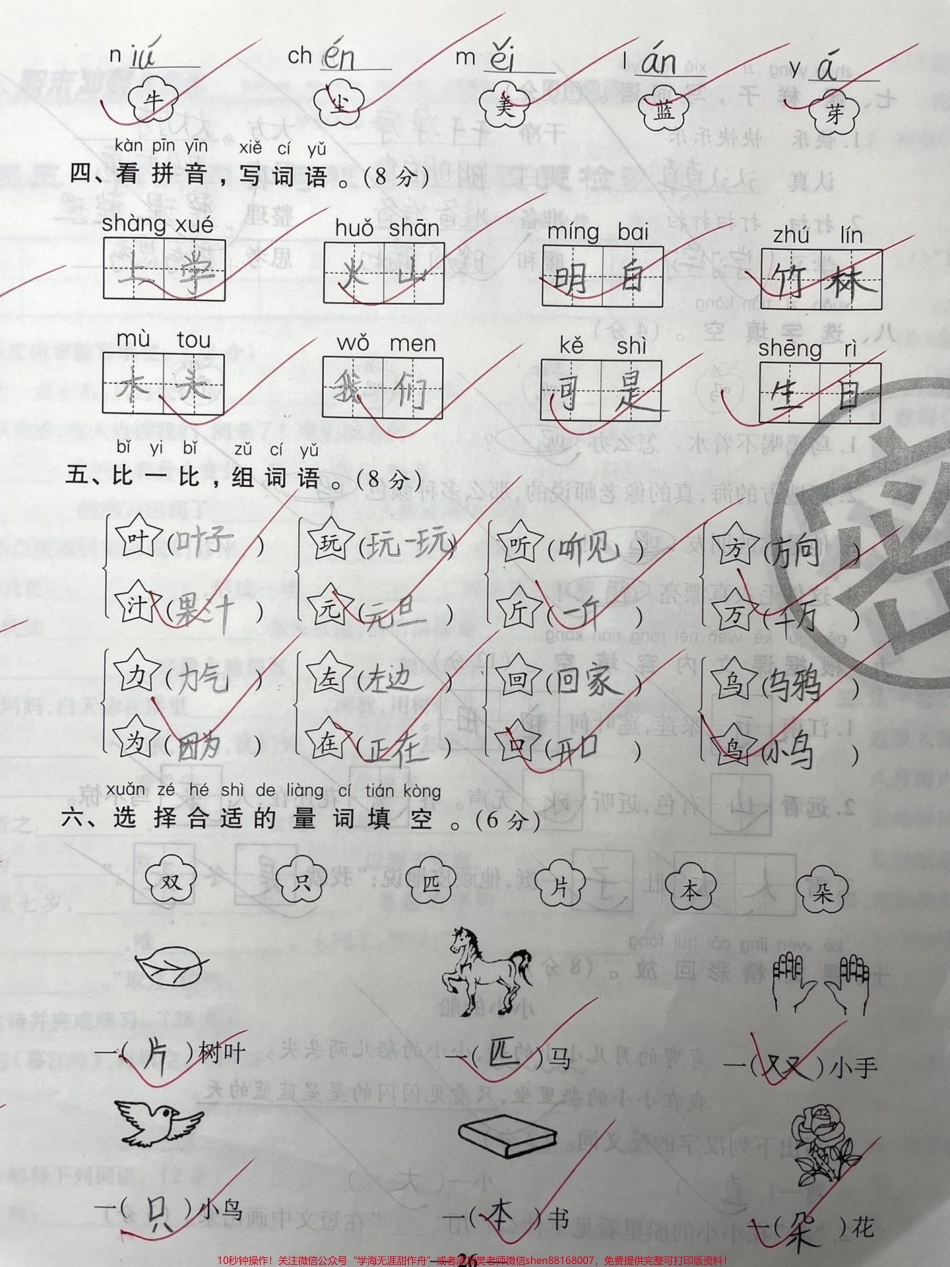 niú chén měi lán yá
牛 尘 美 蓝 芽
kàn pīn yīn xiě cí yǔ
四、看拼音，写词语。(8分)
shàng xué huǒ shān míng bai zhú lín
上学 火山 明白 竹林
mù tou wǒ men kě shì shēng ri
木头 我们 可是 生日
bǐ yi bǐ zǔ cí yǔ
五、比一比，组词语。(8分)
叶(叶子) 玩(玩一玩) 听(听见) 方(方向)
汁(果汁) 元(元旦) 斤(一斤) 万(千万)
力(力气) 左(左边) 回(回家) 乌(乌鸦)
为(因为) 在(正在) 口(开口) 鸟(小鸟)
xuǎn zé hé shì de liàng cí tián kòng
六、选择合适的量词填空。(6分)
双 只 匹 片 本 朵
一(片)树叶 一(匹)马 一(双)小手
一(只)小鸟 一(本)书 一(朵)花
密
26